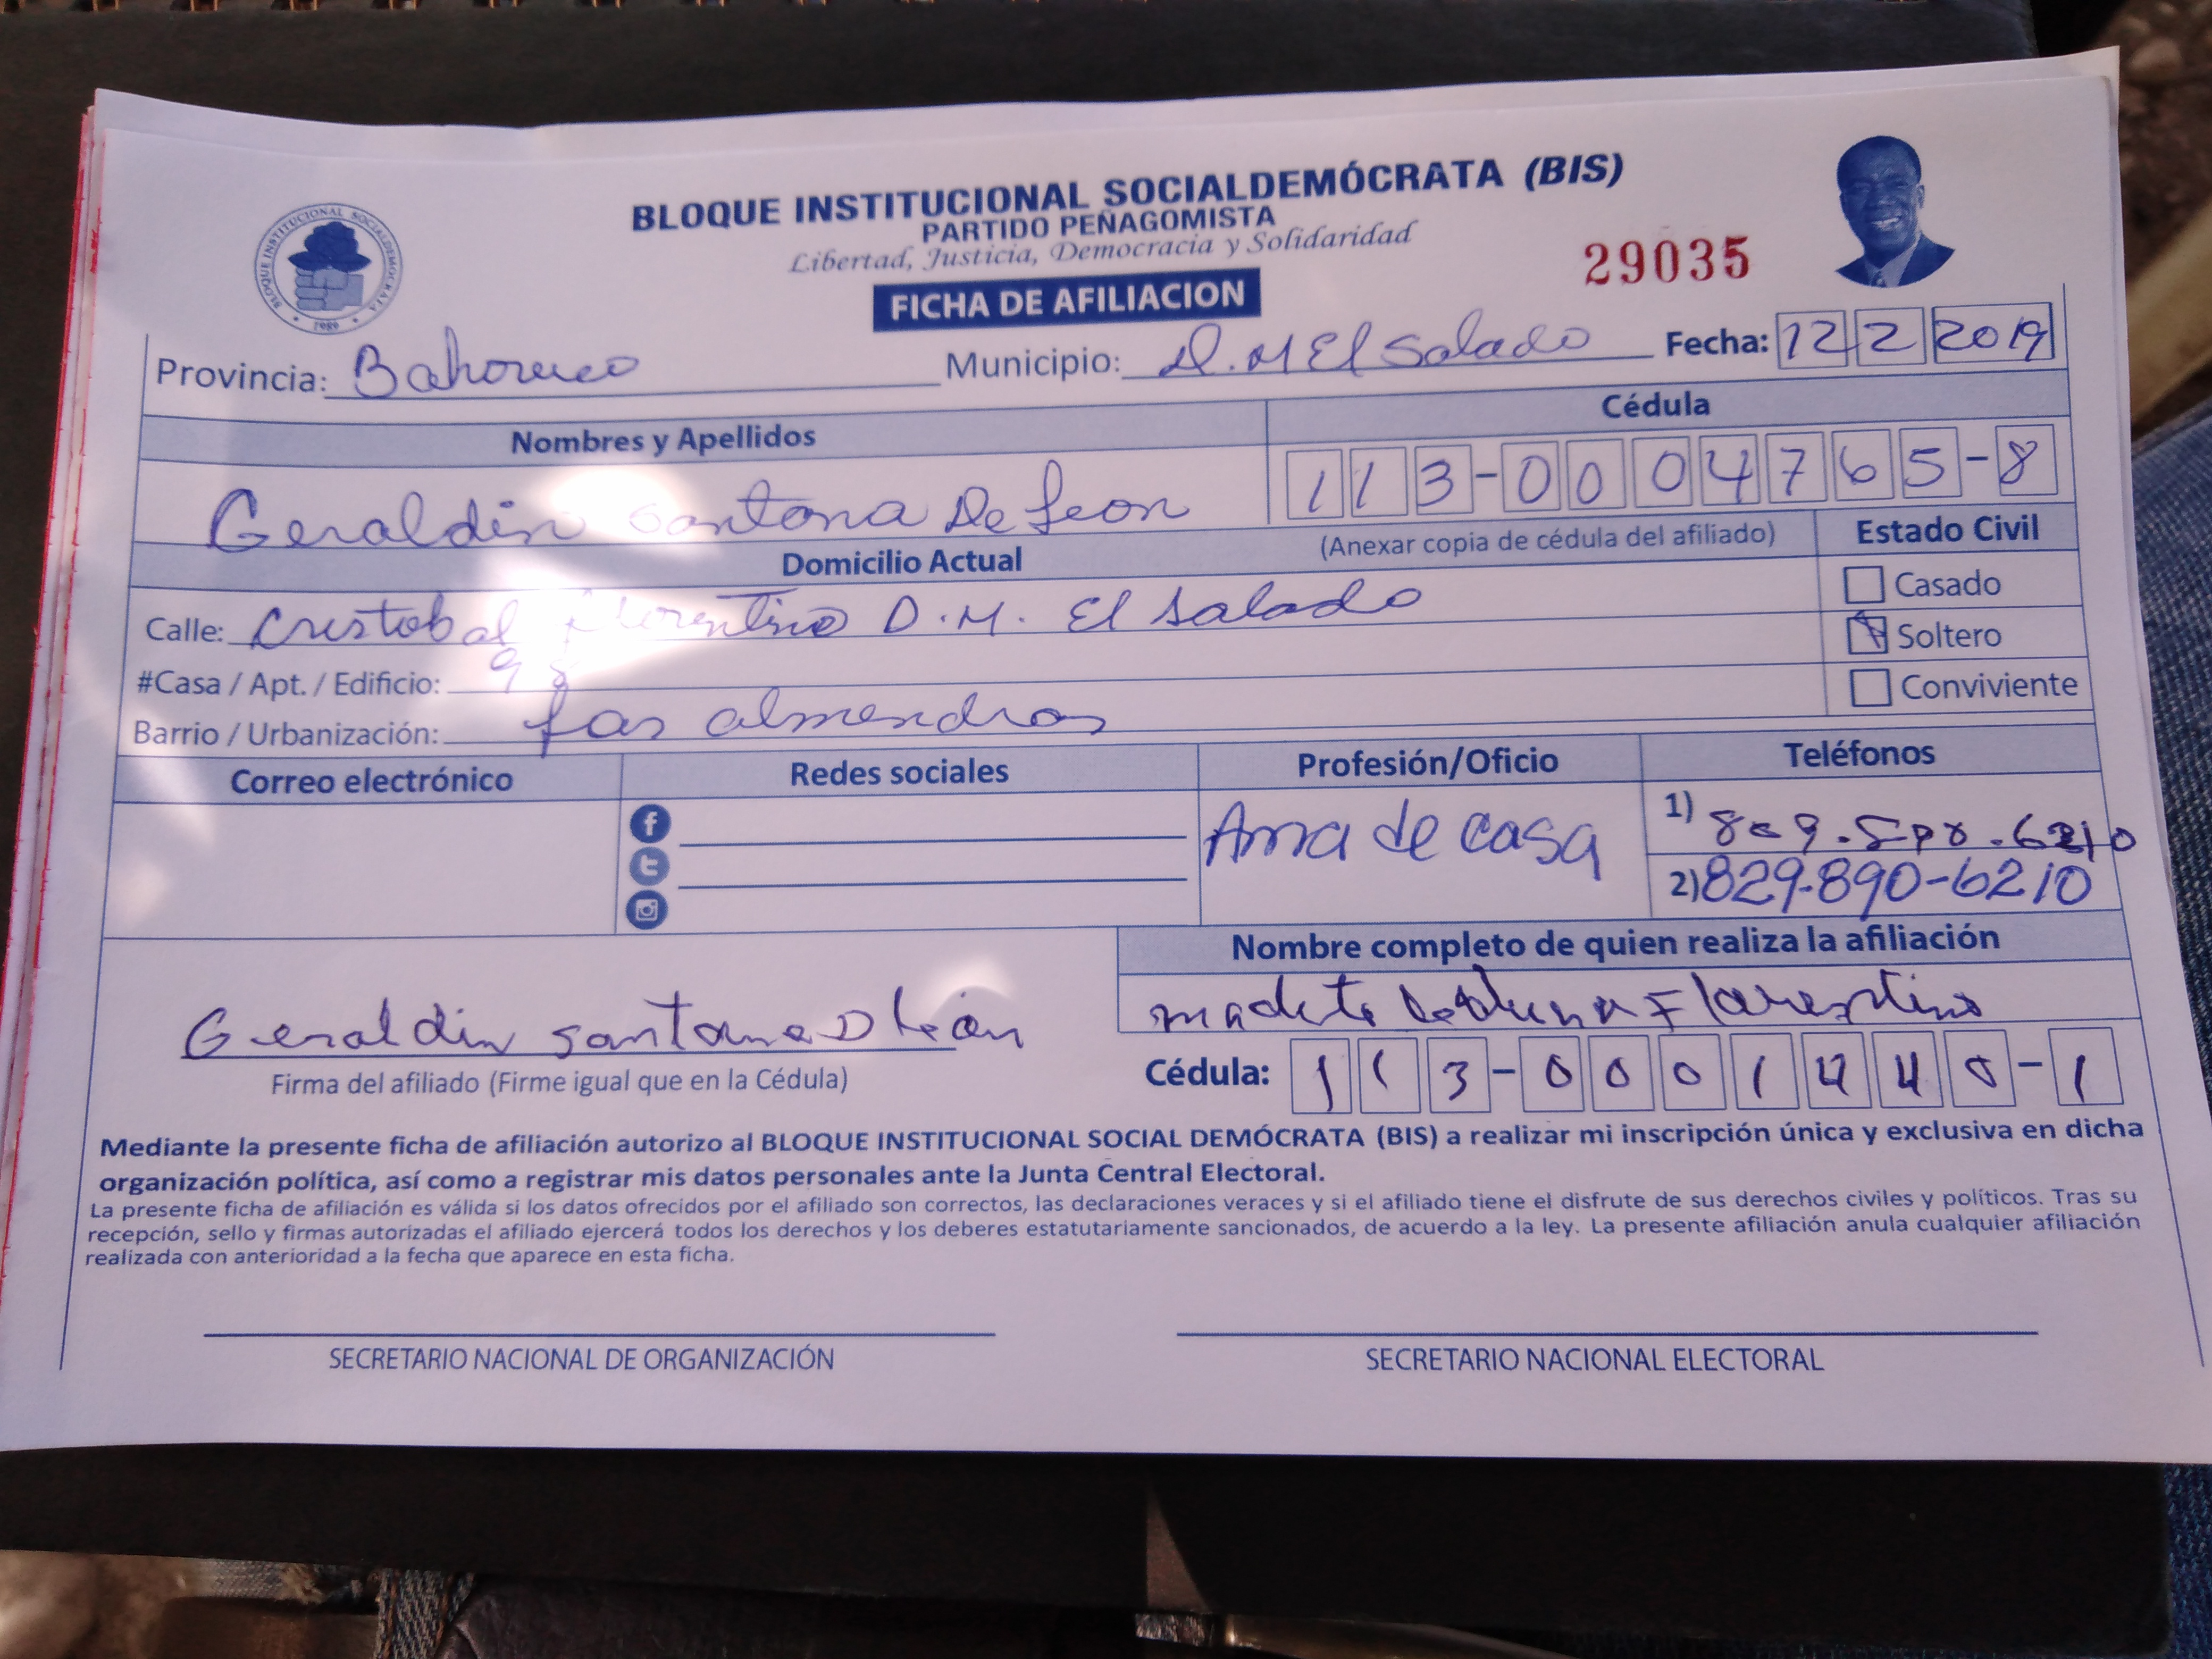 BLOQUE INSTITUCIONAL SOCIALDEMÓCRATA (BIS)
PARTIDO PEÑAGOMISTA
Libertad, Justicia, Democracia y Solidaridad
29035
FICHA DE AFILIACION
BLOQUE INSTITUCIONAL SOCIALDEMOCRATA
1989
Provincia: Bahoruco Municipio: D.M El Salado Fecha: 12 2 2019
Nombres y Apellidos Cédula
Geraldin Santana De Leon 113-0004765-8
Domicilio Actual (Anexar copia de cédula del afiliado) Estado Civil
Calle: Cristobal Florentino D.M. El Salado
Casado
Soltero
#Casa / Apt. / Edificio: 98
Conviviente
Barrio / Urbanización: Las almendras
Correo electrónico Redes sociales Profesión/Oficio Teléfonos
Ama de casa
1) 809.
2) 829-890-6210
Nombre completo de quien realiza la afiliación
Florentino
Geraldin Santana D león
Firma del afiliado (Firme igual que en la Cédula)
Cédula: 113-0001440-1
Mediante la presente ficha de afiliación autorizo al BLOQUE INSTITUCIONAL SOCIAL DEMÓCRATA (BIS) a realizar mi inscripción única y exclusiva en dicha
organización política, así como a registrar mis datos personales ante la Junta Central Electoral.
La presente ficha de afiliación es válida si los datos ofrecidos por el afiliado son correctos, las declaraciones veraces y si el afiliado tiene el disfrute de sus derechos civiles y políticos. Tras su
recepción, sello y firmas autorizadas el afiliado ejercerá todos los derechos y los deberes estatutariamente sancionados, de acuerdo a la ley. La presente afiliación anula cualquier afiliación
realizada con anterioridad a la fecha que aparece en esta ficha.
SECRETARIO NACIONAL DE ORGANIZACIÓN SECRETARIO NACIONAL ELECTORAL